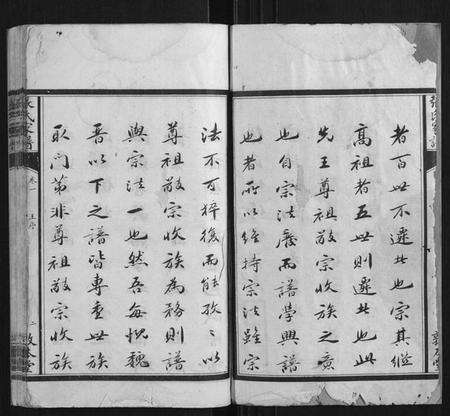 者百世不遷者也宗其繼
高祖者五世則遷者也此
先王尊祖敬宗收族之意
也自宗法廢而譜學興譜
也者所以維持宗法雖宗
法不可猝復而能孜孜以
尊祖敬宗收族為務則譜
與宗法一也然吾每慨魏
晉以下之譜皆專重世族
取門第非尊祖敬宗收族
張氏家譜
卷一
二